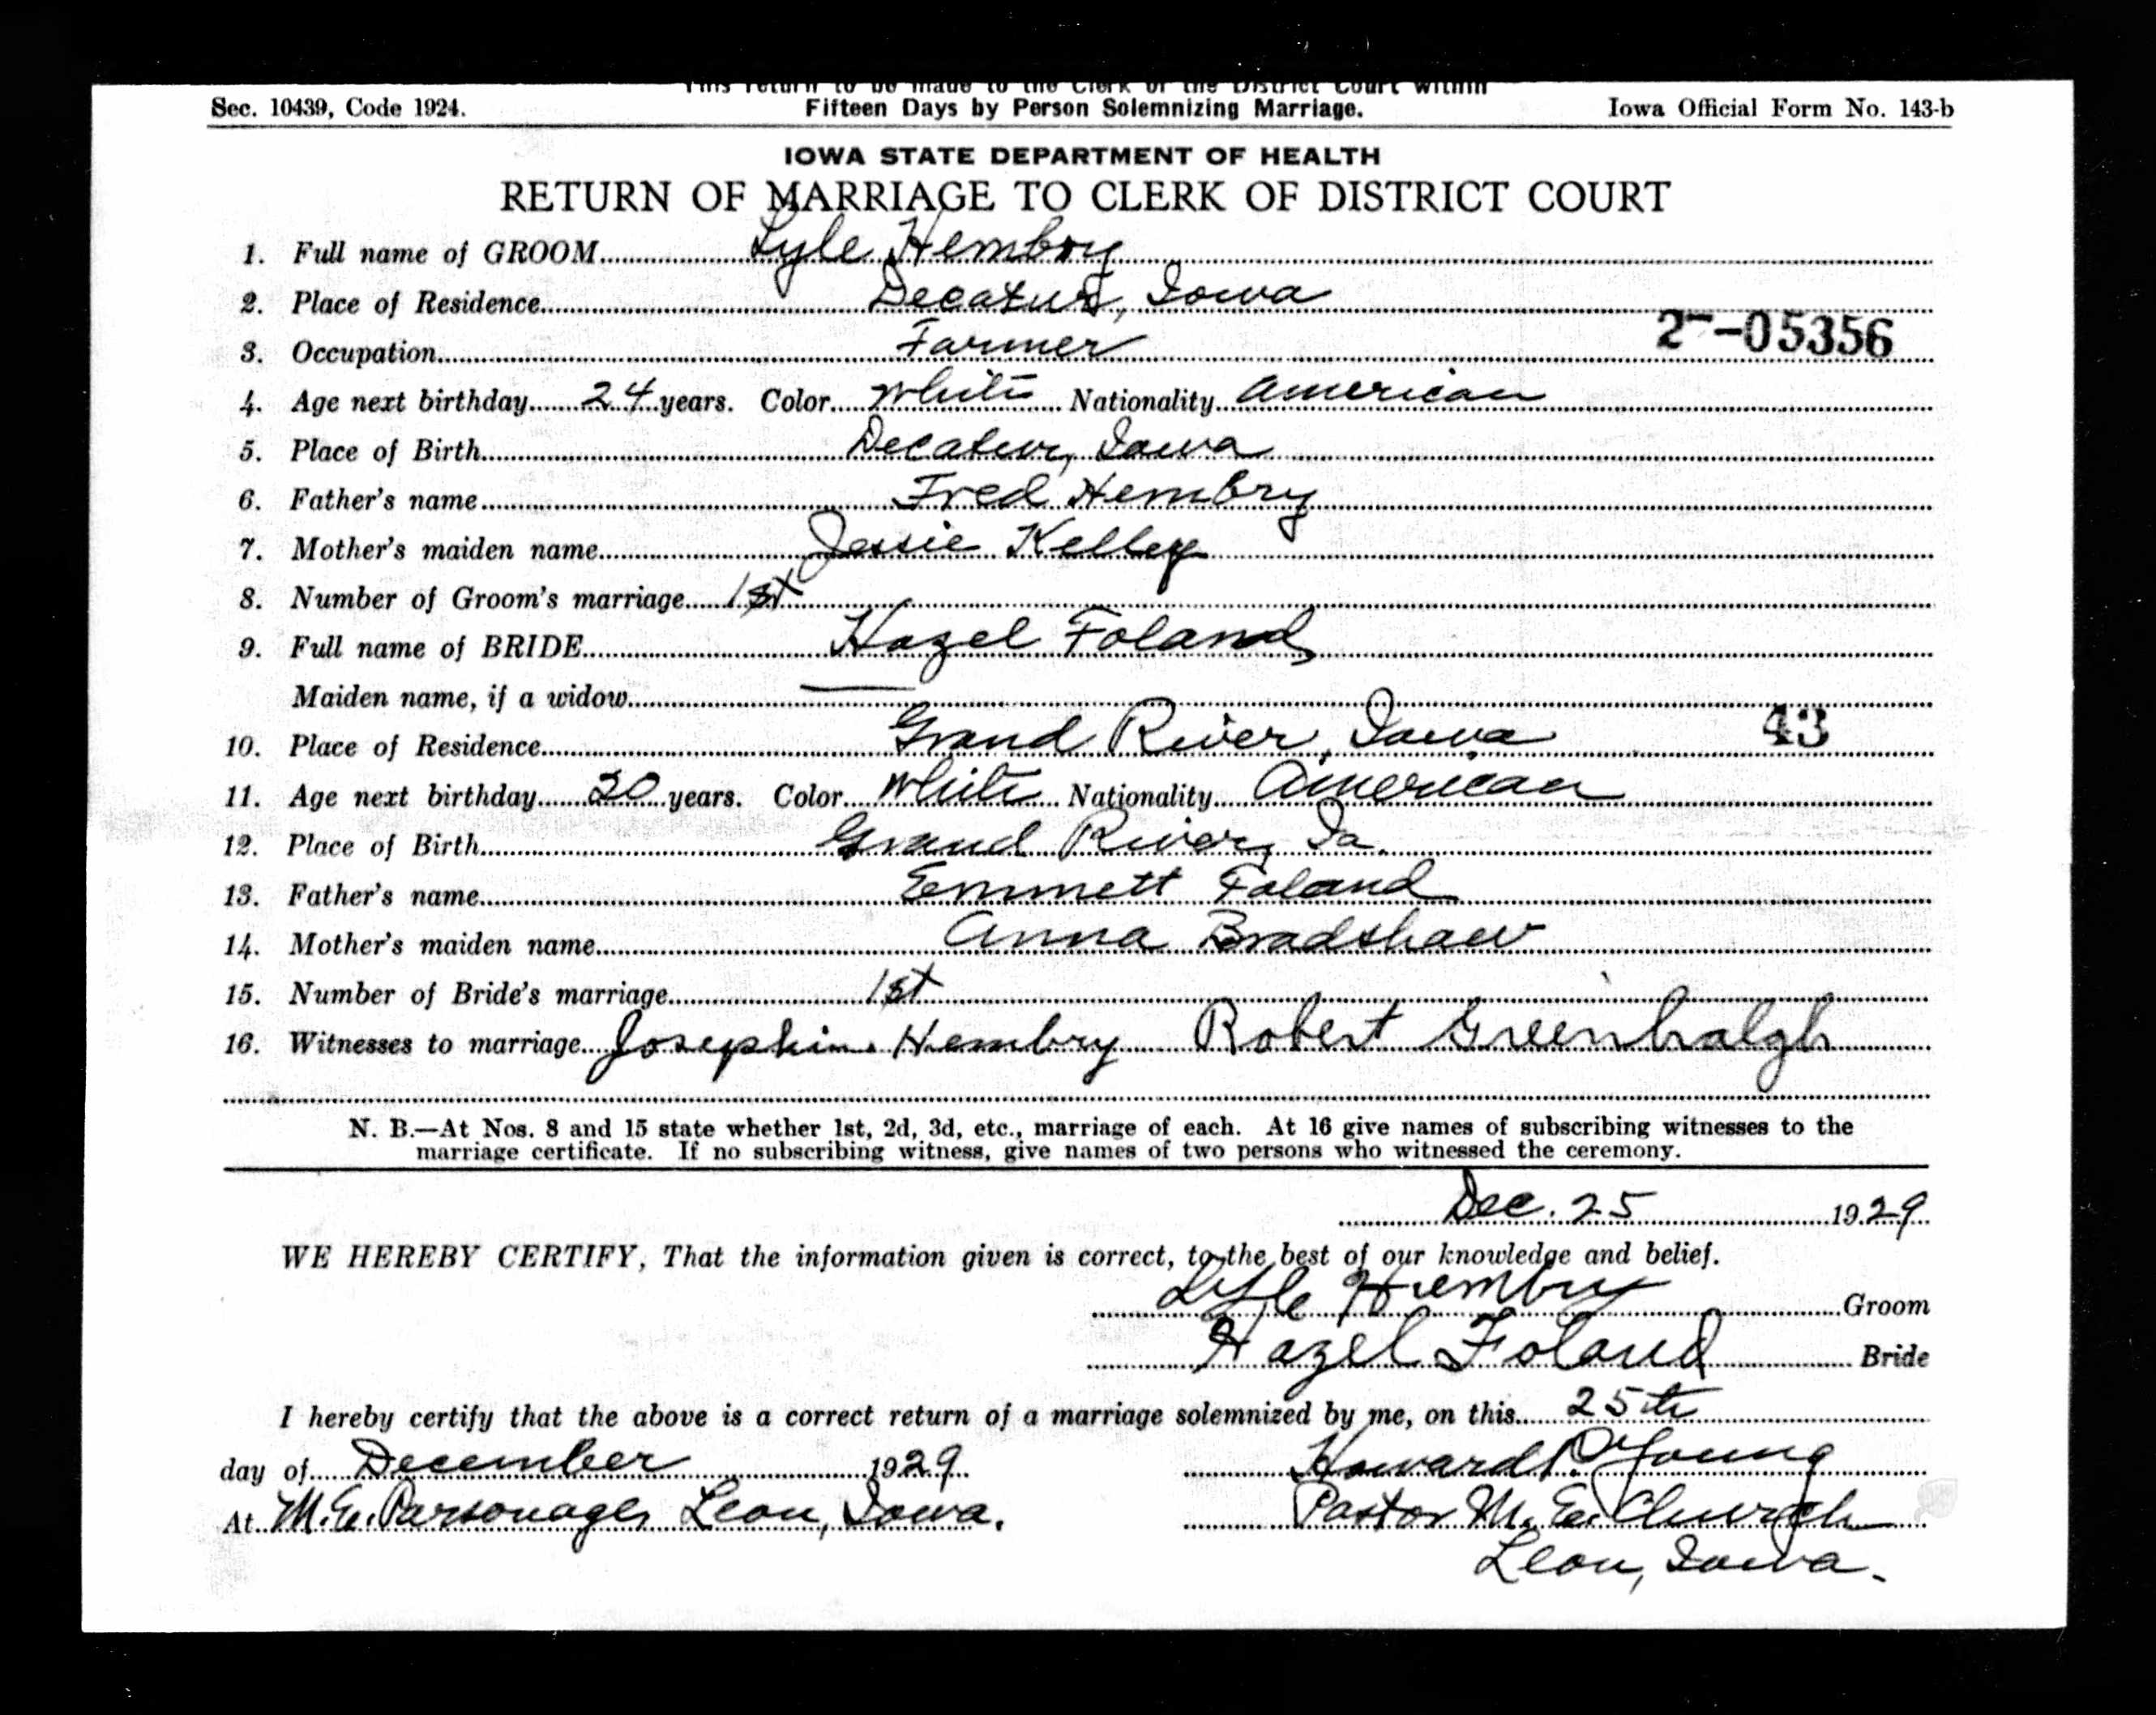 This return to be made to the Clerk of the District Court within
Sec. 10439, Code 1924. Fifteen Days by Person Solemnizing Marriage. Iowa Official Form No. 143-b
IOWA STATE DEPARTMENT OF HEALTH
RETURN OF MARRIAGE TO CLERK OF DISTRICT COURT
1. Full name of GROOM Lyle Hembry
2. Place of Residence Decatur, Iowa
3. Occupation Farmer 2--05356
4. Age next birthday 24 years. Color White Nationality American
5. Place of Birth Decatur, Iowa
6. Father's name Fred Hembry
7. Mother's maiden name Jessie Kelley
8. Number of Groom's marriage 1st
9. Full name of BRIDE Hazel Foland
Maiden name, if a widow
10. Place of Residence Grand River, Iowa 43
11. Age next birthday 20 years. Color White Nationality American
12. Place of Birth Grand River, Ia.
13. Father's name Emmett Foland
14. Mother's maiden name Anna Bradshaw
15. Number of Bride's marriage 1st
16. Witnesses to marriage Josephine Hembry Robert Greenhalgh
N. B.—At Nos. 8 and 15 state whether 1st, 2d, 3d, etc., marriage of each. At 16 give names of subscribing witnesses to the
marriage certificate. If no subscribing witness, give names of two persons who witnessed the ceremony.
Dec. 25 1929
WE HEREBY CERTIFY, That the information given is correct, to the best of our knowledge and belief.
Lyle Hembry Groom
Hazel Foland Bride
I hereby certify that the above is a correct return of a marriage solemnized by me, on this 25th
day of December 1929 Howard P. Young
At M.E. Parsonage, Leon, Iowa. Pastor M. E. Church
Leon, Iowa.